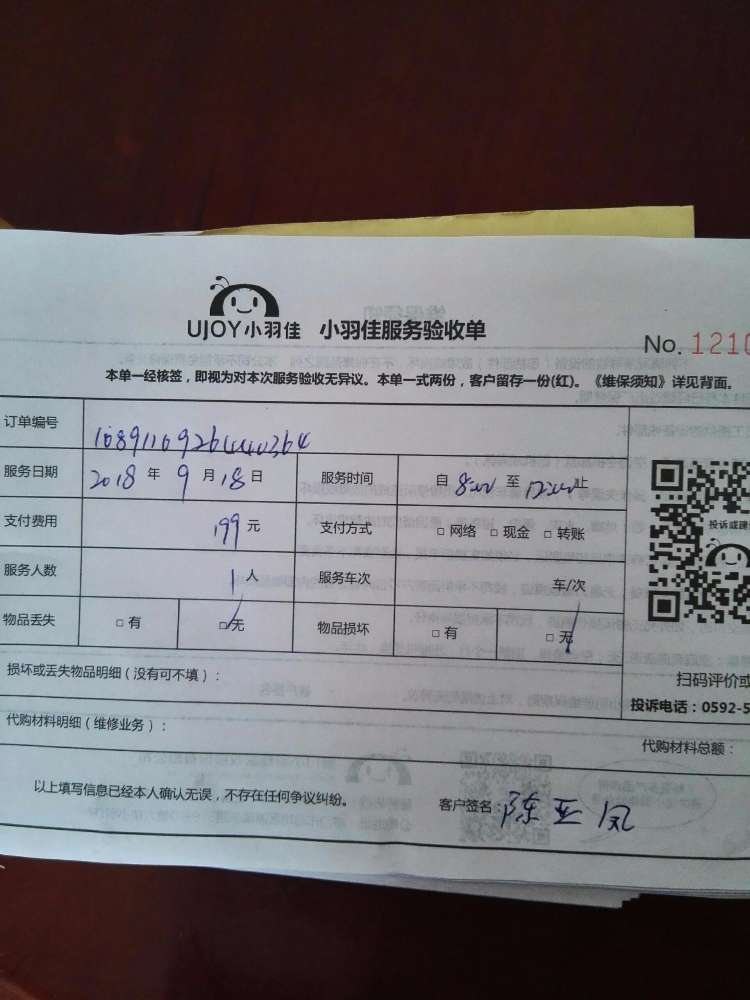 UJOY小羽佳 小羽佳服务验收单
No. 1210
本单一经核签，即视为对本次服务验收无异议。本单一式两份，客户留存一份(红)。《维保须知》详见背面。
订单编号
服务日期 2018 年 9 月 18 日 服务时间 自 8:00 至 12:00 止
支付费用 199 元 支付方式 □ 网络 □ 现金 □ 转账
投诉或建
服务人数 1 人 服务车次 车/次
物品丢失 □ 有 □ 无 物品损坏 □ 有 □ 无
损坏或丢失物品明细（没有可不填）：
扫码评价或
投诉电话：0592-5
代购材料明细（维修业务）：
代购材料总额：
以上填写信息已经本人确认无误，不存在任何争议纠纷。
客户签名：陈亚凤